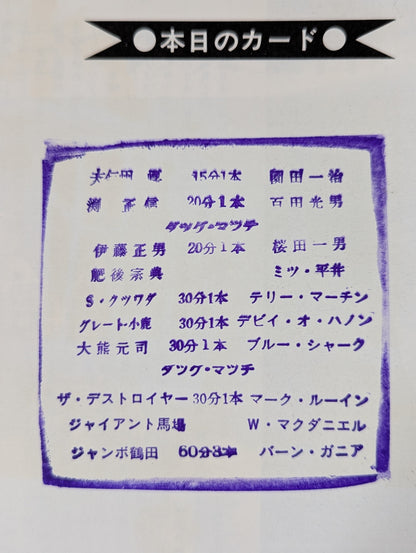 ●本日のカード●
大仁田 厚 15分1本 園田一治
渕 正信 20分1本 百田光男
タッグ・マッチ
伊藤正男 20分1本 桜田一男
肥後宗典 ミツ・平井
S・クツワダ 30分1本 テリー・マーチン
グレート・小鹿 30分1本 デビイ・オ・ハノン
大熊元司 30分1本 ブルー・シャーク
タッグ・マッチ
ザ・デストロイヤー 30分1本 マーク・ルーイン
ジャイアント馬場 W・マクダニエル
ジャンボ鶴田 60分3本 バーン・ガニア